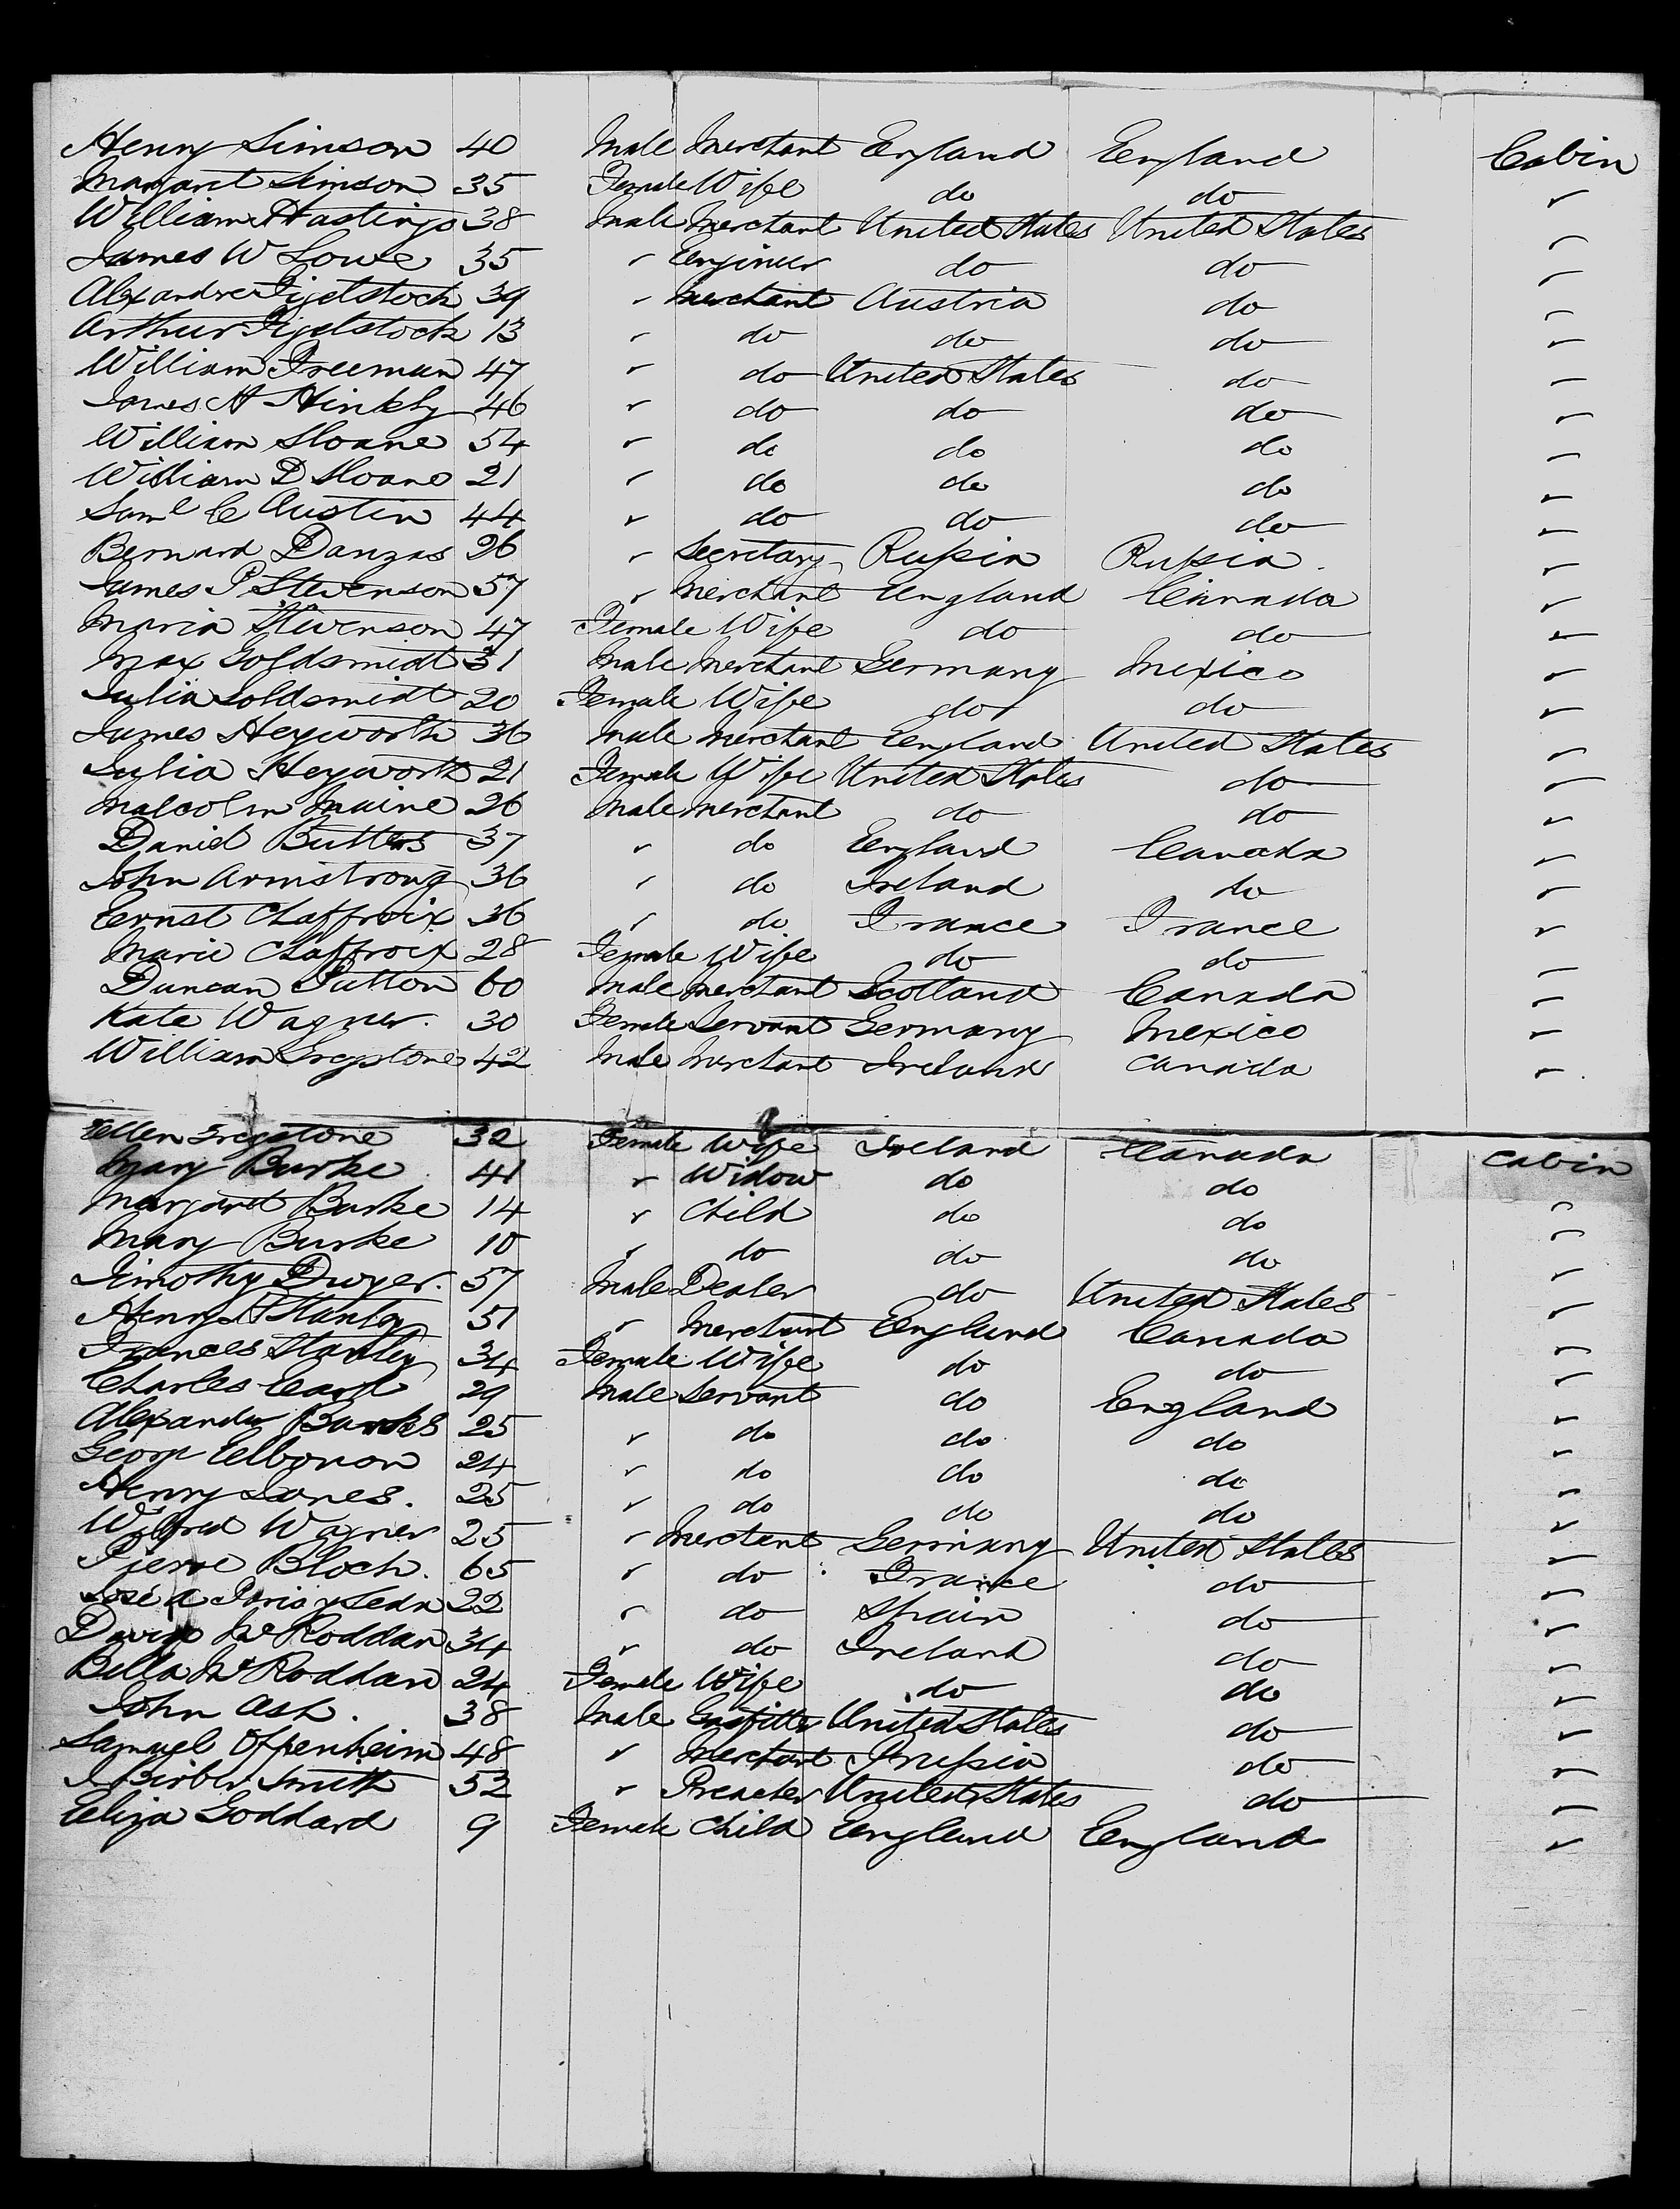 Henry Simson 40 Male Merchant England England Cabin
Margaret Simson 35 Female Wife do do "
William Hastings 38 Male Merchant United States United States "
James W Lowe 35 " Engineer do do "
Alexander Figelstock 39 " Merchant Austria do "
Arthur Figelstock 13 " do do do "
William Freeman 47 " do United States do "
James H Hinkly 46 " do do do "
William Sloane 54 " do do do "
William D Sloane 21 " do do do "
Saml C Austin 44 " do do do "
Bernard Danzas 26 " Secretary Russia Russia "
James P Stevenson 57 " Merchant England Canada "
Maria Stevenson 47 Female Wife do do "
Max Goldsmidt 31 Male Merchant Germany Mexico "
Julia Goldsmidt 20 Female Wife do do "
James Heyworth 36 Male Merchant England United States "
Julia Heyworth 21 Female Wife United States do "
Malcolm Maine 26 Male Merchant do do "
Daniel Butters 37 " do England Canada "
John Armstrong 36 " do Ireland do "
Ernst Chaffroix 36 " do France France "
Marie Chaffroix 28 Female Wife do do "
Duncan Sutton 60 Male Merchant Scotland Canada "
Kate Wagner. 30 Female Servant Germany Mexico "
William Gregstone 42 Male Merchant Ireland Canada "
Ellen Gregstone 32 Female Wife Ireland Canada Cabin
Mary Burke 41 " Widow do do "
Margaret Burke 14 " Child do do "
Mary Burke 10 " do do do "
Timothy Dwyer. 57 Male Dealer do United States "
Henry Stanley 51 " Merchant England Canada "
Frances Stanley 34 Female Wife do do "
Charles Card 29 Male Servant do England "
Alexander 25 " do do do "
George 24 " do do do "
Henry Jones. 25 " do do do "
Wilfred Wagner 25 " Merchant Germany United States "
Pierre Bloch. 65 " do France do "
José 22 " do Spain do "
David McRoddan 34 " do Ireland do "
Bella McRoddan 24 Female Wife do do "
John Ash. 38 Male Gasfitter United States do "
Samuel Oppenheim 48 " Merchant Prussia do "
Smith 52 " Preacher United States do "
Eliza Goddard 9 Female Child England England "